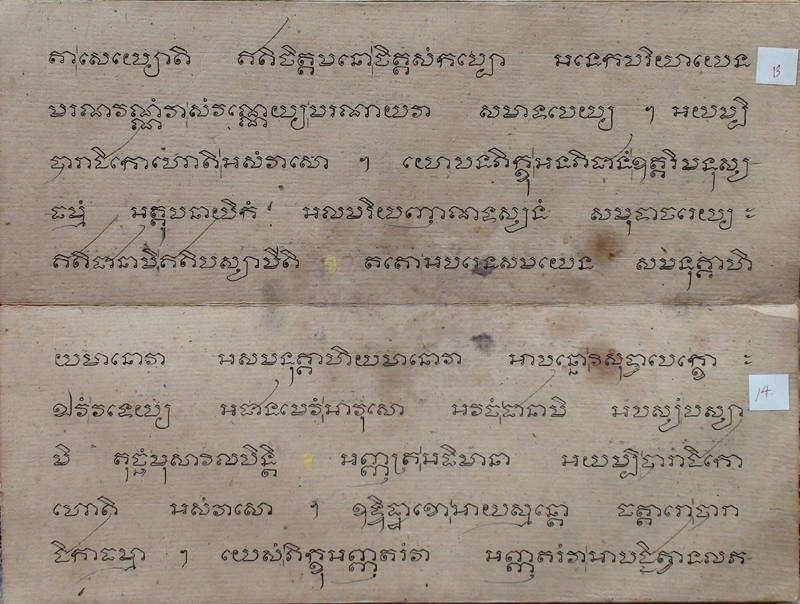 តា សេយ្យោតិ ឥតិចិត្តមនោ ចិត្តសំកប្បោ អនេកបរិយាយេន
មរណវណ្ណំវា សំវណ្ណេយ្យ មរណាយវា សមាទបេយ្យ ។ អយម្បិ
បារាជិកោ ហោតិ អសំវាសោ ។ យោបនភិក្ខុ អនភិជានំ ឧត្តរិមនុស្ស
ធម្មំ អត្តុបនាយិកំ អលមរិយញាណទស្សនំ សមុទាចរេយ្យ ៈ
ឥតិជានាមិ ឥតិបស្សាមីតិ តតោ អបរេនសមយេន សមនុគ្គាហិ
យមានោវា អសមនុគ្គាហិយមានោវា អាបន្នោ វិសុទ្ធាបេក្ខោ ៈ
ឯវំ វទេយ្យ អជានមេវំ អាវុសោ អវចំ ជានាមិ អបស្សំ បស្សា
មិ តុច្ឆំ មុសាវិលបិន្តិ អញ្ញត្រ អធិមានា អយម្បិ បារាជិកោ
ហោតិ អសំវាសោ ។ ឧទ្ទិដ្ឋា ខោ អាយស្មន្តោ ចត្តារោ បារា
ជិកា ធម្មា ។ យេសំ ភិក្ខុ អញ្ញតរំវា អញ្ញតរំវា អាបជ្ជិត្វា នលភ
13
14